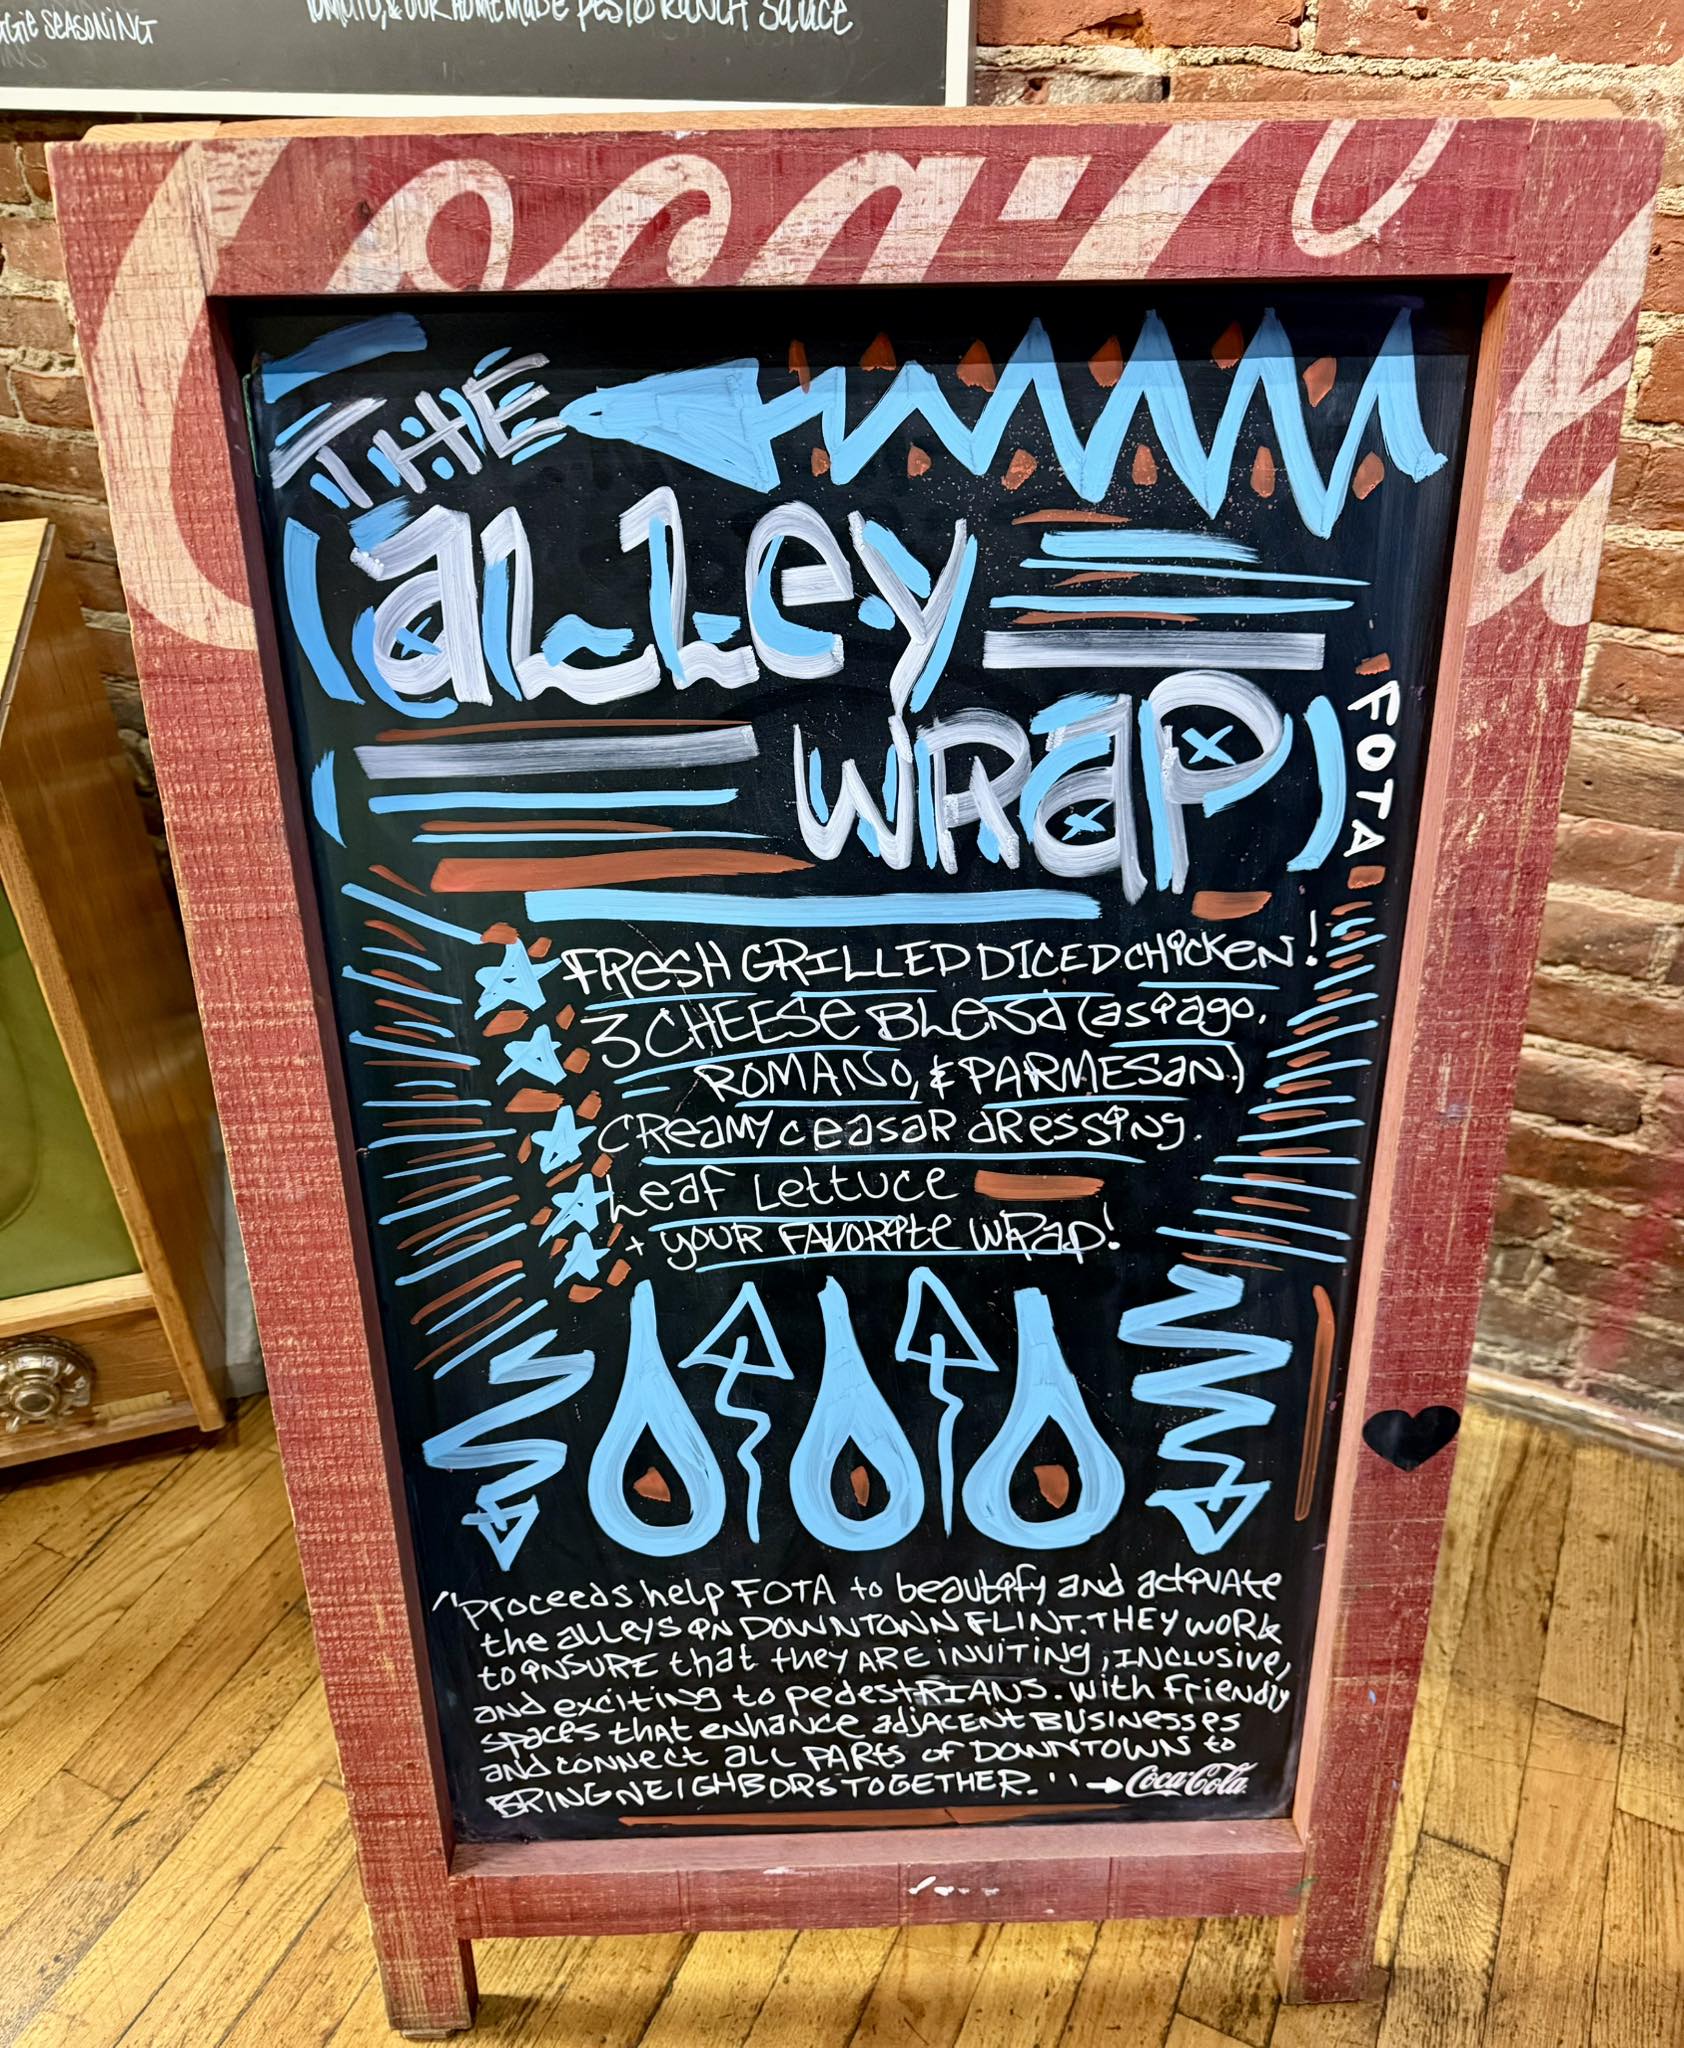 GGIE SEASONING
TOMATO, & OUR HOMEMADE PESTO RANCH SAUCE
Coca-Co
THE
ALLEY
WRAP
FOTA
FRESH GRILLED DICED CHICKEN!
3 CHEESE BLEND (asiago,
ROMANO, & PARMESAN)
CREAMY ceasar dressing.
Leaf Lettuce
+ YOUR FAVORITE WRAP!
"Proceeds help FOTA to beautify and activate
the alleys in DOWNTOWN FLINT. THEY WORK
to iNSURE that they ARE INVITING, INCLUSIVE,
and exciting to pedestRIANS. With Friendly
spaces that enhance adjACENT BUSINESSES
and connect ALL PARts of DOWNTOWN to
BRING NEIGHBORS TOGETHER." → Coca-Cola